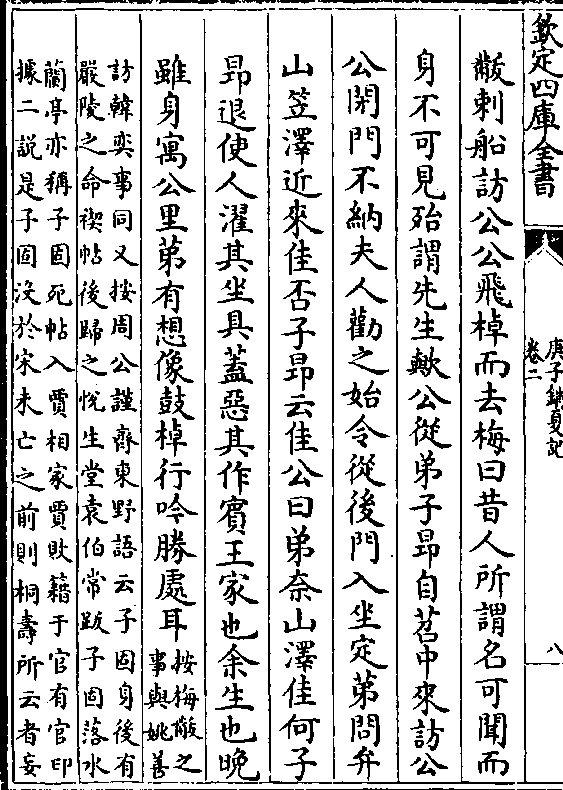 欽定四庫全書
庚子銷夏記
卷二
八
黻刺船訪公公飛棹而去梅曰昔人所謂名可聞而
身不可見殆謂先生歟公從弟子昂自苕中來訪公
公閉門不納夫人勸之始令從後門入坐定第問弁
山笠澤近來佳否子昂云佳公曰弟奈山澤佳何子
昂退使人濯其坐具蓋惡其作賓王家也余生也晚
雖身寓公里第有想像鼓棹行吟勝處耳
按梅黻之
事與姚善
訪韓奕事同又按周公謹齊東野語云子固身後有
嚴陵之命禊帖後歸之悅生堂袁伯常跋子固落水
蘭亭亦稱子固死帖入賈相家賈敗籍于官有官印
據二說是子固沒於宋未亡之前則桐壽所云者妄